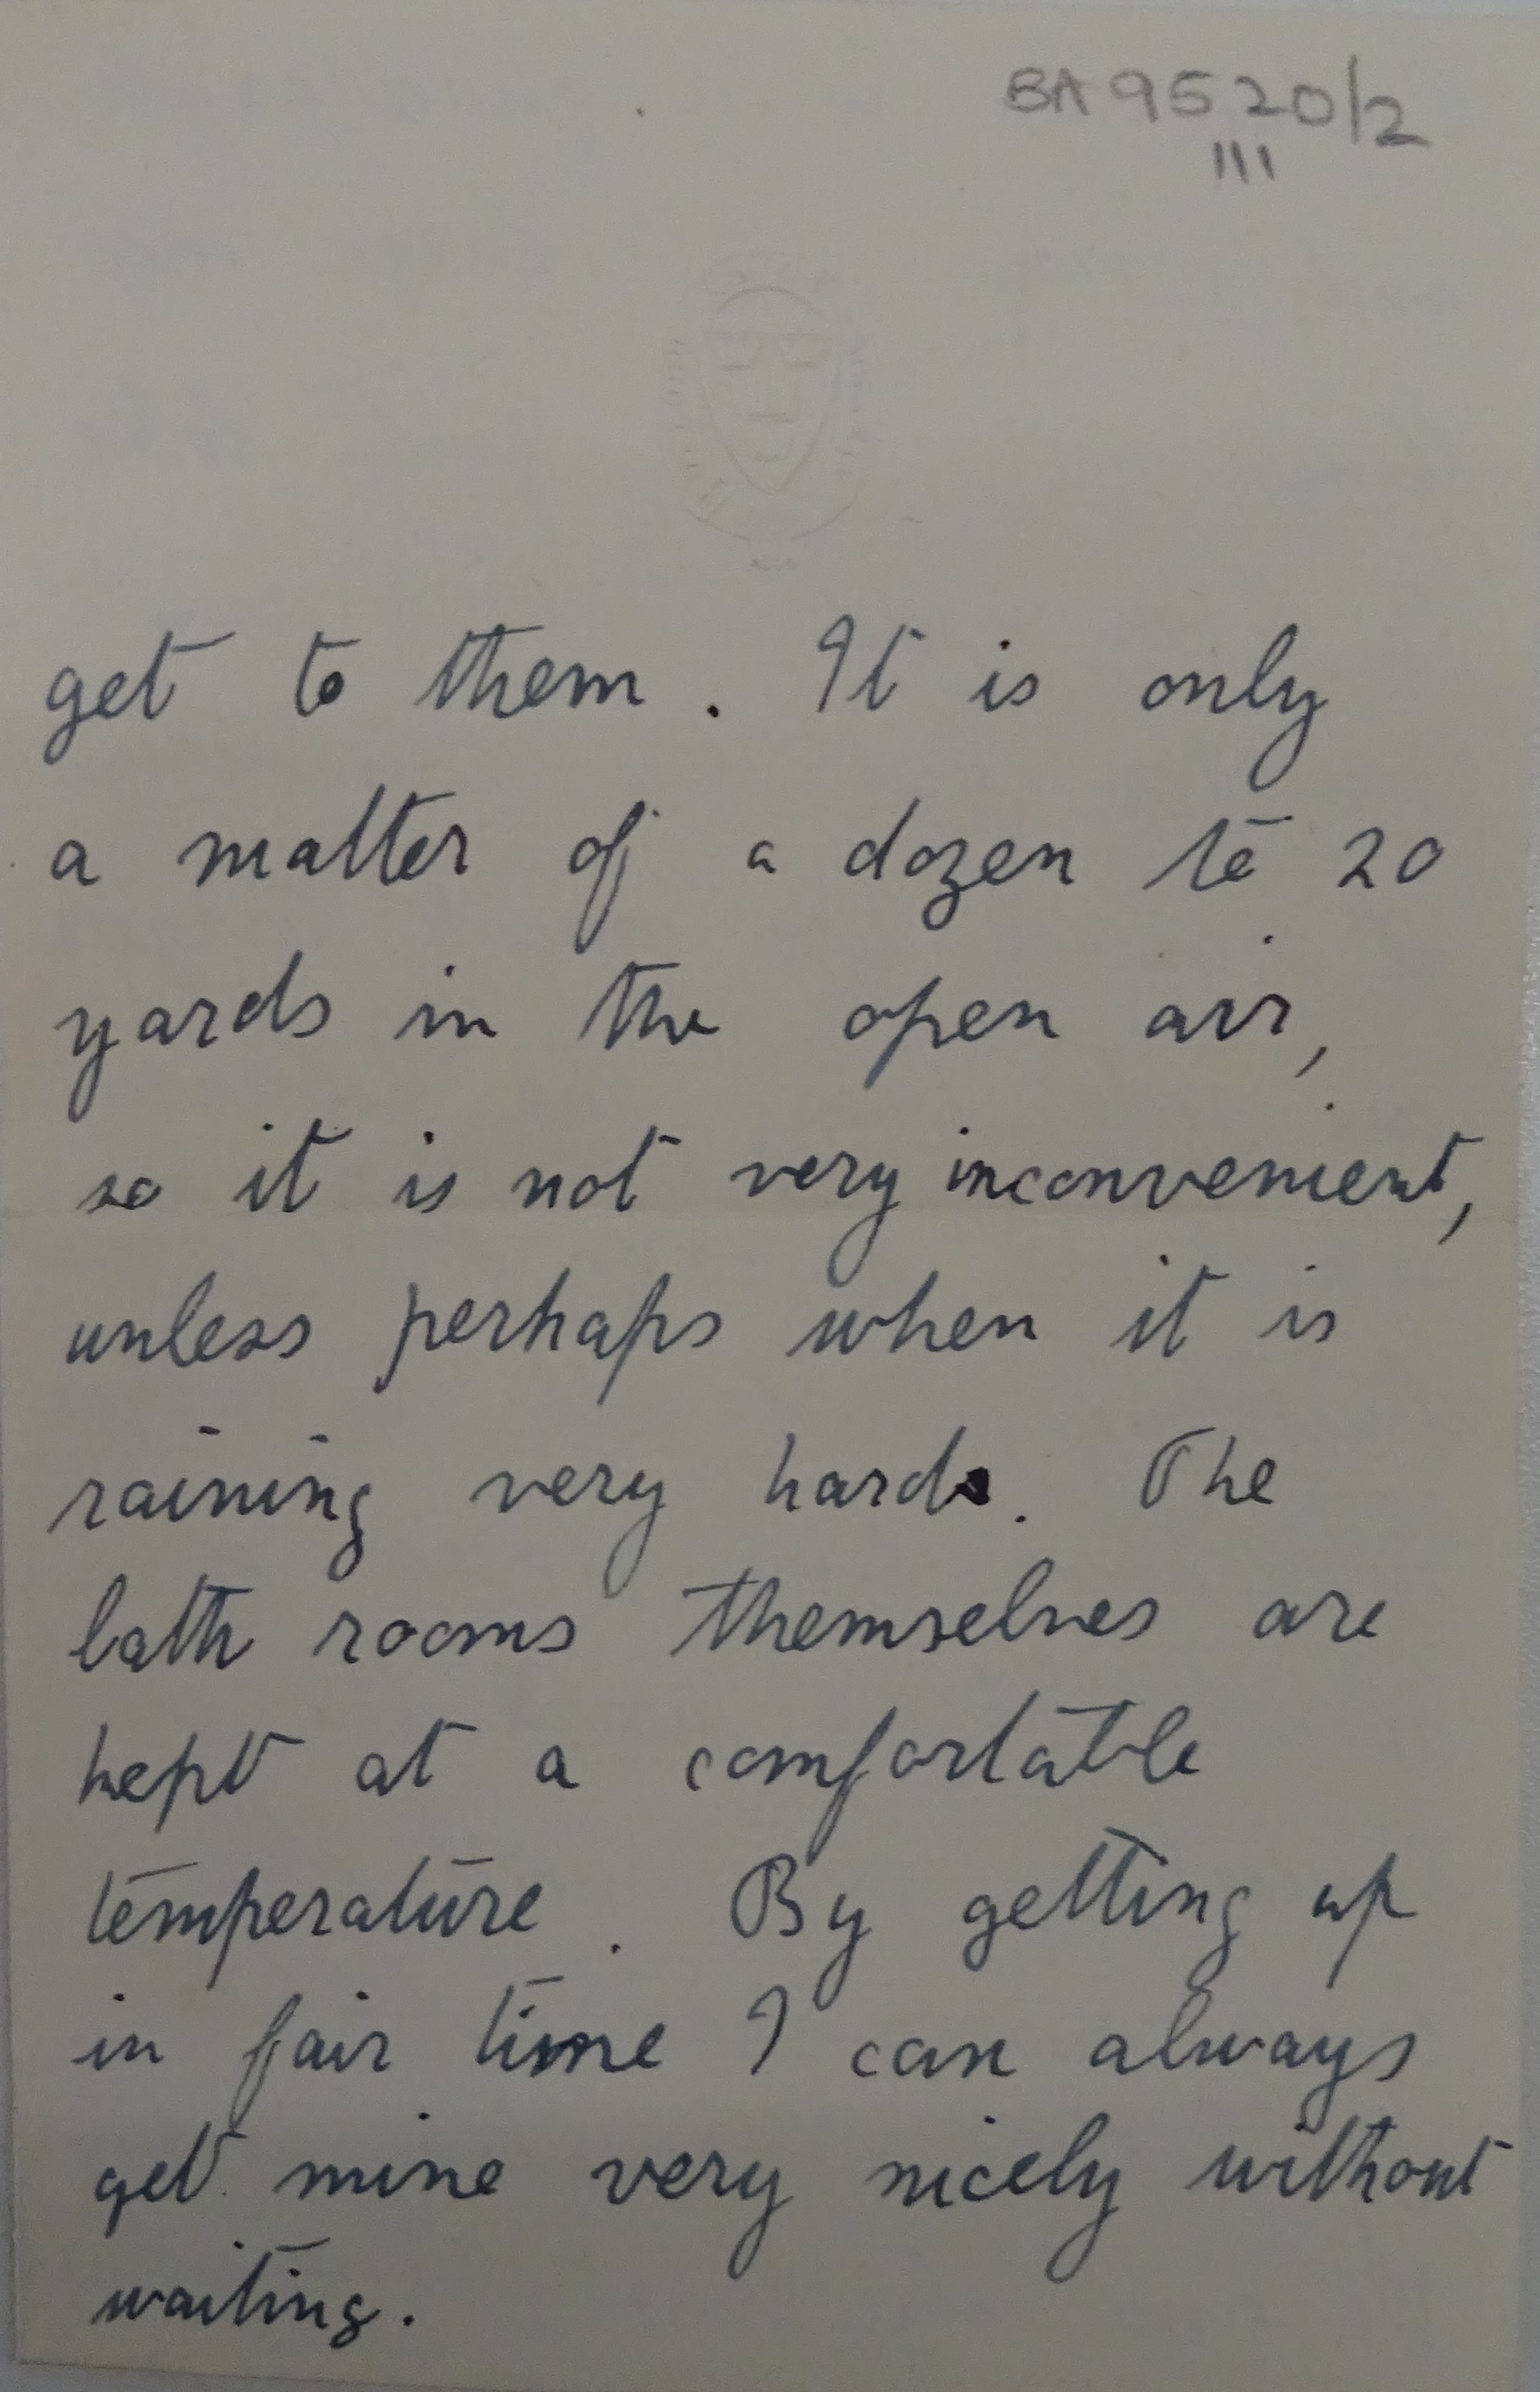 BA 9520/2
III
get to them. It is only
a matter of a dozen to 20
yards in the open air,
so it is not very inconvenient,
unless perhaps when it is
raining very hard. The
bath rooms themselves are
kept at a comfortable
temperature. By getting up
in fair time I can always
get mine very nicely without
waiting.